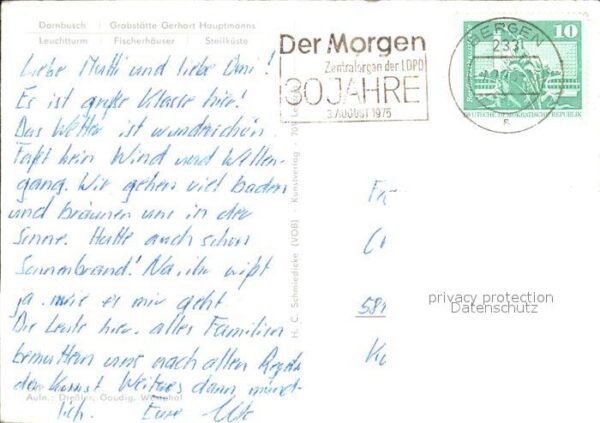 Dornbusch | Grabstätte Gerhart Hauptmanns
Leuchtturm | Fischerhäuser | Steilküste
Liebe Mutti und liebe Omi!
Es ist große Klasse hier.
Das Wetter ist wunderschön.
Faßt kein Wind und Wellen-
gang. Wir gehen viel baden
und bräunen uns in der
Sonne. Hatte auch schon
Sonnenbrand! Na, ihr wißt
ja wie es mir geht.
Die Leute hier, alles Familien
bemuttern uns nach allen Regeln
der Kunst. Weiteres dann münd-
lich. Eure Ute
Aufn.: Dreßler, Gaudig, Westphal
H. C. Schmiedicke (VOB) · Kunstverlag · 705
Der Morgen
Zentralorgan der LDPD
30 JAHRE
3. AUGUST 1975
BERGEN
10
DEUTSCHE DEMOKRATISCHE REPUBLIK
privacy protection
Datenschutz